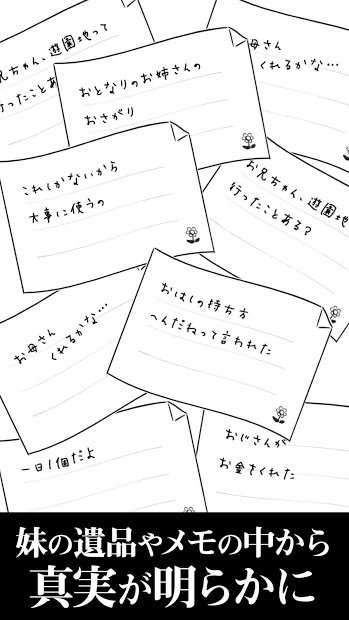 兄ちゃん、遊園地って
行ったことあ
おとなりのお姉さんの
おさがり
母さん
くれるかな…
これしかないから
大事に使うの
お兄ちゃん、遊園地
行ったことある?
お母さん
くれるかな…
おはしの持ち方
へんだねって言われた
一日1個だよ
おじさんが
お金をくれた
妹の遺品やメモの中から
真実が明らかに